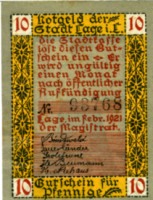 10 Notgeld der 10
Stadt Lage i. L.
Die Stadtkasse
löst diesen Gut-
schein ein · Er
wird ungültig
einen Monat
nach öffentlicher
Ankündigung
Nr. 98768
Lage im Febr. 1921
der Magistrat.
10 Gutschein für 10
Pfennige